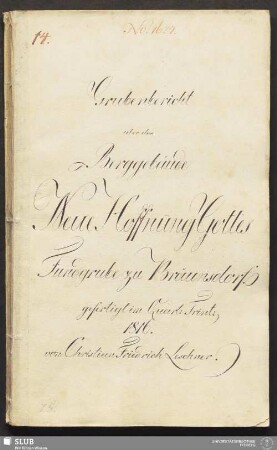 14.
No. 1609.
Grubenbericht
über das
Berggebäude
Neue Hoffnung Gottes
Fundgrube zu Bräunsdorf
gefertigt im Quart: Trinit:
1816.
von Christian Friedrich Leschner.
SLUB
Wir führen Wissen.